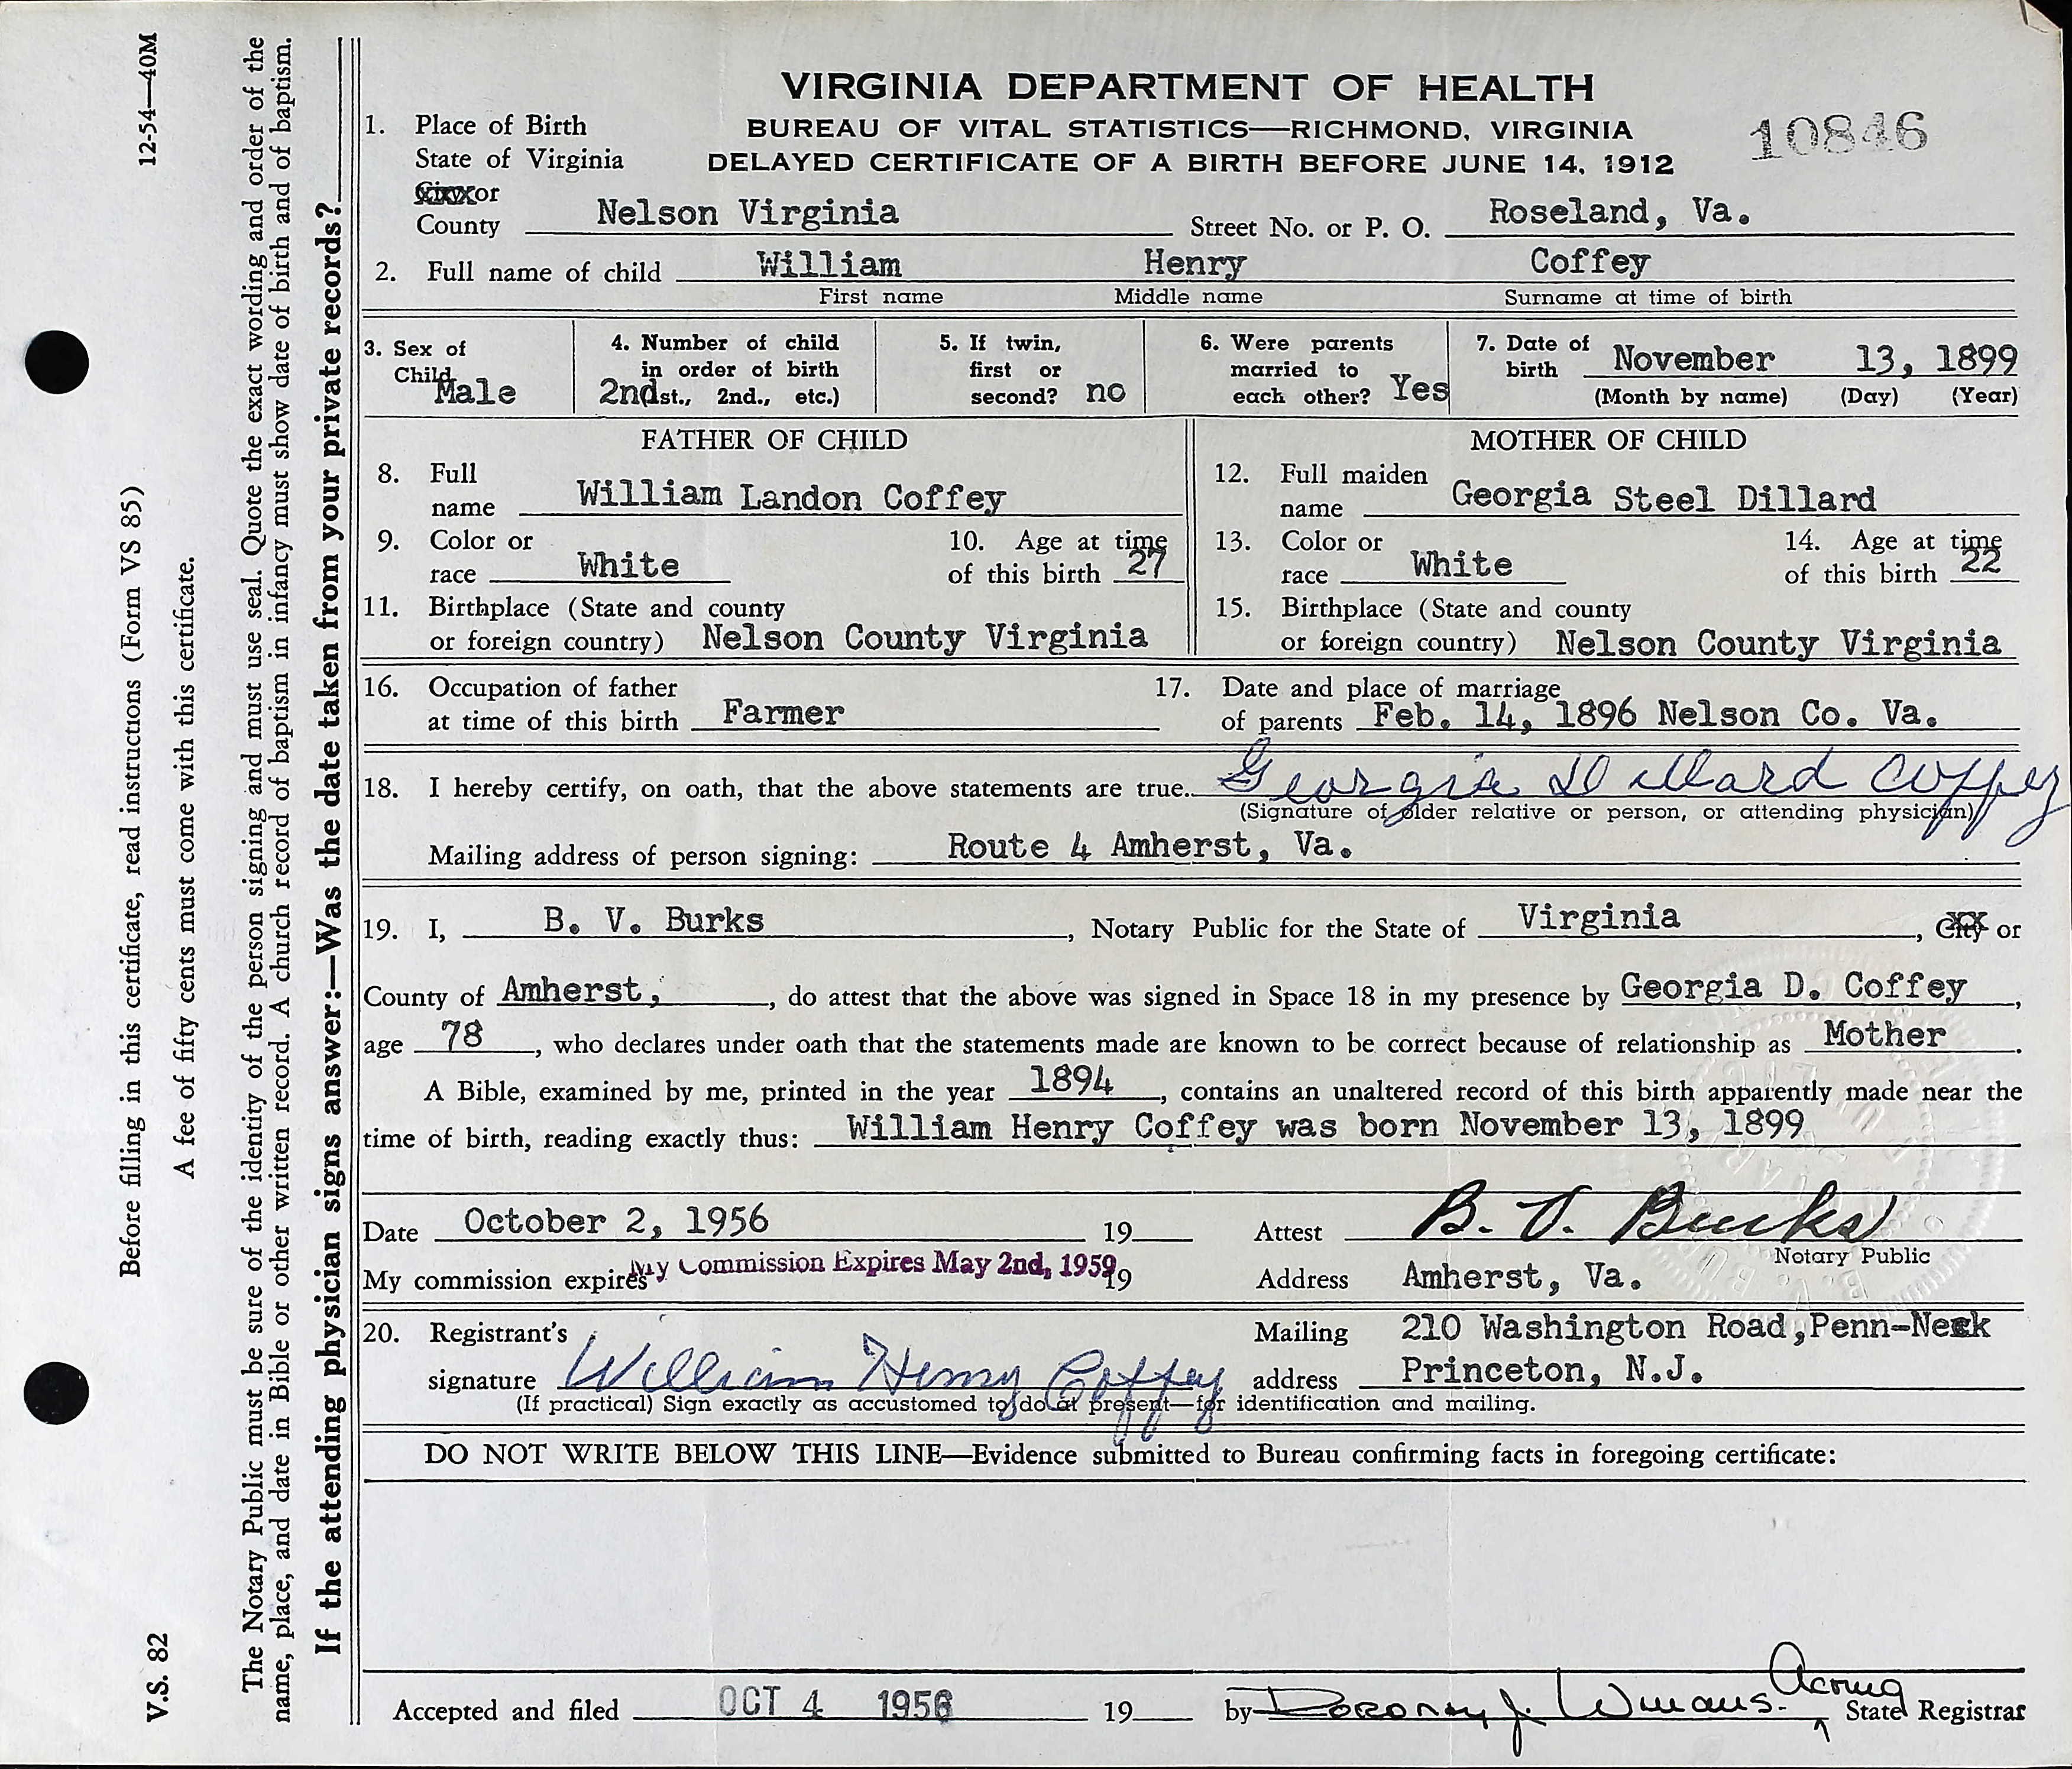 VIRGINIA DEPARTMENT OF HEALTH
BUREAU OF VITAL STATISTICS—RICHMOND, VIRGINIA
DELAYED CERTIFICATE OF A BIRTH BEFORE JUNE 14, 1912
10846
1. Place of Birth
State of Virginia
or
County Nelson Virginia Street No. or P. O. Roseland, Va.
2. Full name of child William Henry Coffey
First name Middle name Surname at time of birth
3. Sex of Child Male
4. Number of child in order of birth 2nd st., 2nd., etc.)
5. If twin, first or second? no
6. Were parents married to each other? Yes
7. Date of birth November 13, 1899
(Month by name) (Day) (Year)
FATHER OF CHILD
8. Full name William Landon Coffey
9. Color or race White
10. Age at time of this birth 27
11. Birthplace (State and county
or foreign country) Nelson County Virginia
MOTHER OF CHILD
12. Full maiden name Georgia Steel Dillard
13. Color or race White
14. Age at time of this birth 22
15. Birthplace (State and county
or foreign country) Nelson County Virginia
16. Occupation of father
at time of this birth Farmer
17. Date and place of marriage
of parents Feb. 14, 1896 Nelson Co. Va.
18. I hereby certify, on oath, that the above statements are true. Georgia Dillard Coffey
(Signature of older relative or person, or attending physician)
Mailing address of person signing: Route 4 Amherst, Va.
19. I, B. V. Burks, Notary Public for the State of Virginia, City or
County of Amherst, , do attest that the above was signed in Space 18 in my presence by Georgia D. Coffey,
age 78, who declares under oath that the statements made are known to be correct because of relationship as Mother.
A Bible, examined by me, printed in the year 1894, contains an unaltered record of this birth apparently made near the
time of birth, reading exactly thus: William Henry Coffey was born November 13, 1899
Date October 2, 1956 19 Attest B. V. Burks
Notary Public
My commission expires My Commission Expires May 2nd, 1959 19 Address Amherst, Va.
20. Registrant's
signature William Henry Coffey
Mailing address 210 Washington Road,Penn-Neck
Princeton, N.J.
(If practical) Sign exactly as accustomed to do at present—for identification and mailing.
DO NOT WRITE BELOW THIS LINE—Evidence submitted to Bureau confirming facts in foregoing certificate:
Accepted and filed OCT 4 1956 19 by Dorothy J. Acting State Registrar
12-54—40M
Before filling in this certificate, read instructions (Form VS 85)
A fee of fifty cents must come with this certificate.
V.S. 82
The Notary Public must be sure of the identity of the person signing and must use seal. Quote the exact wording and order of the
name, place, and date in Bible or other written record. A church record of baptism in infancy must show date of birth and of baptism.
If the attending physician signs answer:—Was the date taken from your private records?